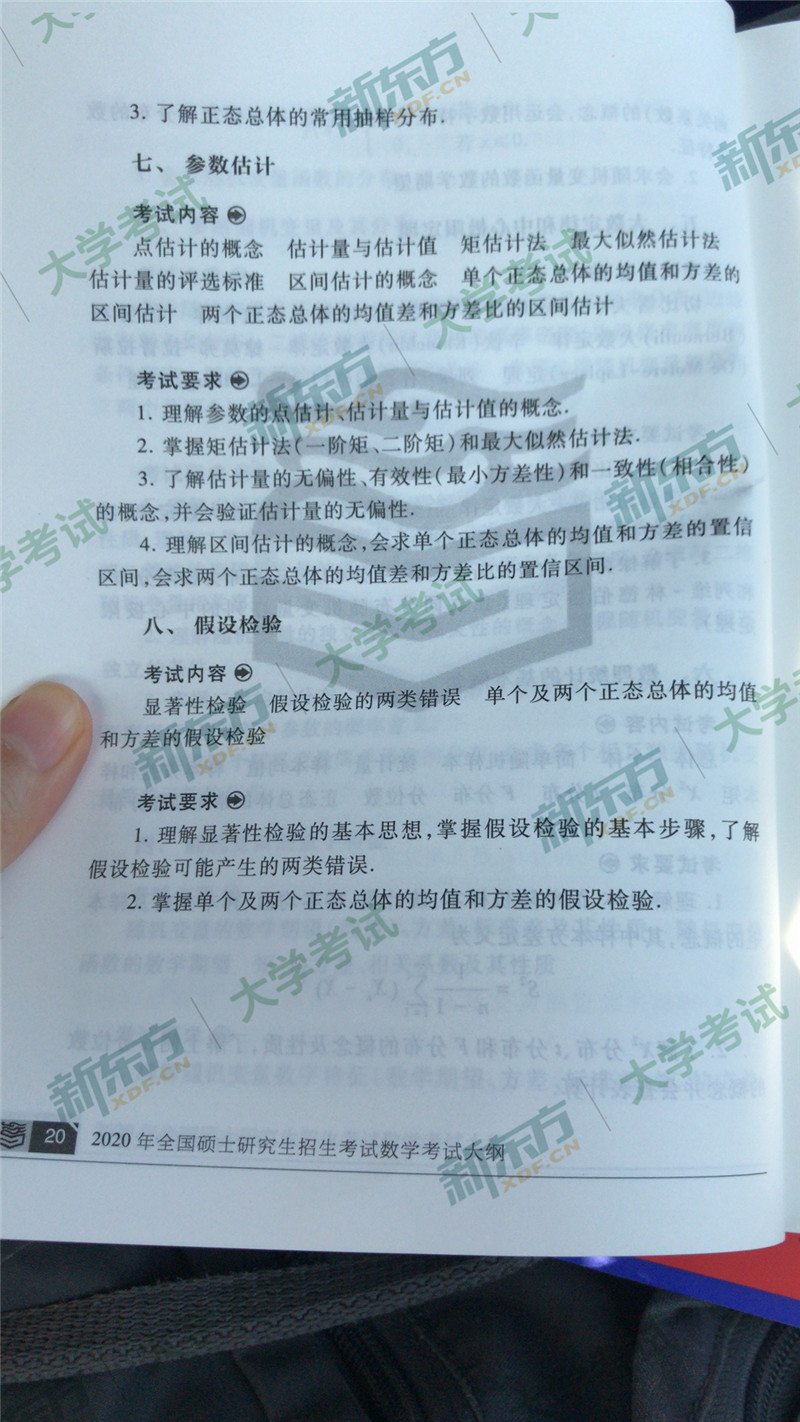 3. 了解正态总体的常用抽样分布.
七、 参数估计
考试内容
点估计的概念 估计量与估计值 矩估计法 最大似然估计法
估计量的评选标准 区间估计的概念 单个正态总体的均值和方差的
区间估计 两个正态总体的均值差和方差比的区间估计
考试要求
1. 理解参数的点估计、估计量与估计值的概念.
2. 掌握矩估计法(一阶矩、二阶矩)和最大似然估计法.
3. 了解估计量的无偏性、有效性(最小方差性)和一致性(相合性)
的概念,并会验证估计量的无偏性.
4. 理解区间估计的概念,会求单个正态总体的均值和方差的置信
区间,会求两个正态总体的均值差和方差比的置信区间.
八、 假设检验
考试内容
显著性检验 假设检验的两类错误 单个及两个正态总体的均值
和方差的假设检验
考试要求
1. 理解显著性检验的基本思想,掌握假设检验的基本步骤,了解
假设检验可能产生的两类错误.
2. 掌握单个及两个正态总体的均值和方差的假设检验.
20 2020年全国硕士研究生招生考试数学考试大纲
新东方 XDF.CN
大学考试